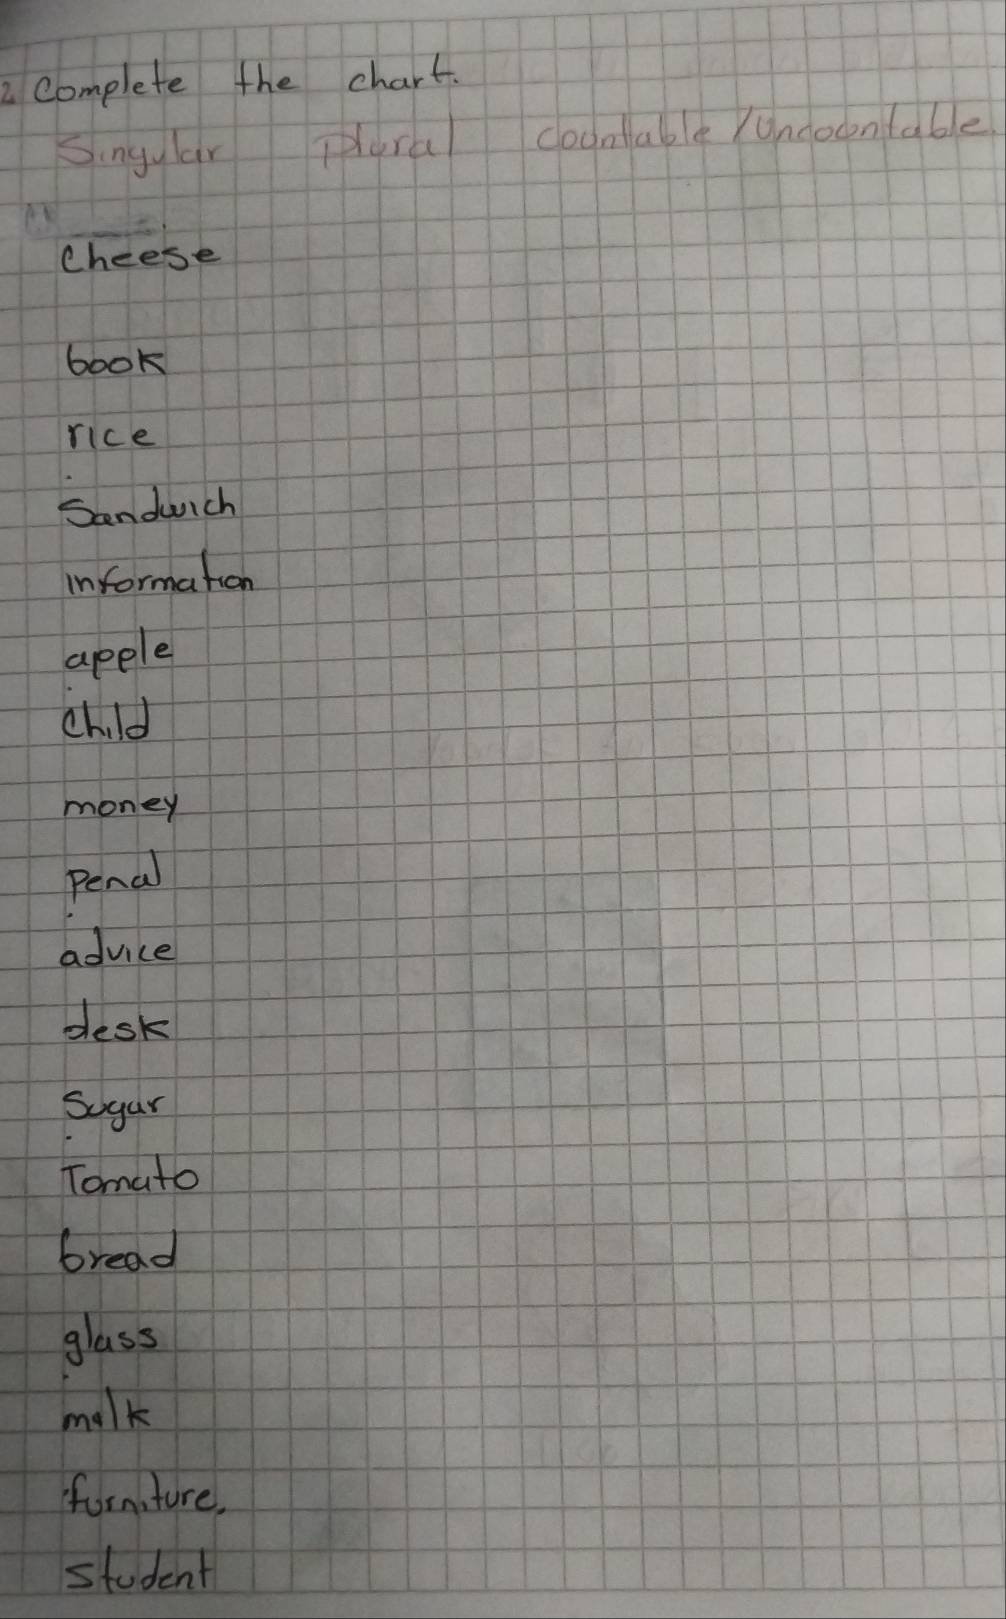 2 Complete the chart.
Singular Plural countable / Uncountable
Cheese
book
rice
Sandwich
information
apple
Child
money
advice
desk
Sugar
Tomato
bread
glass
milk
furniture.
student